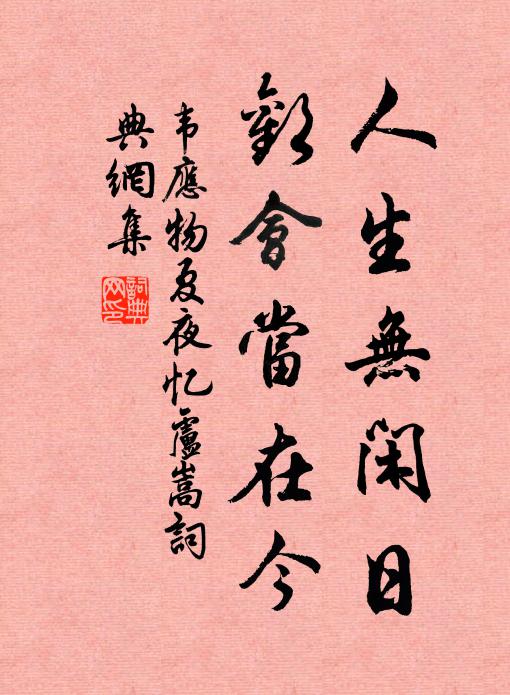 人生無閑日
歡會當在今
韦應物夏夜忆盧嵩詞
典網集
詞典网印